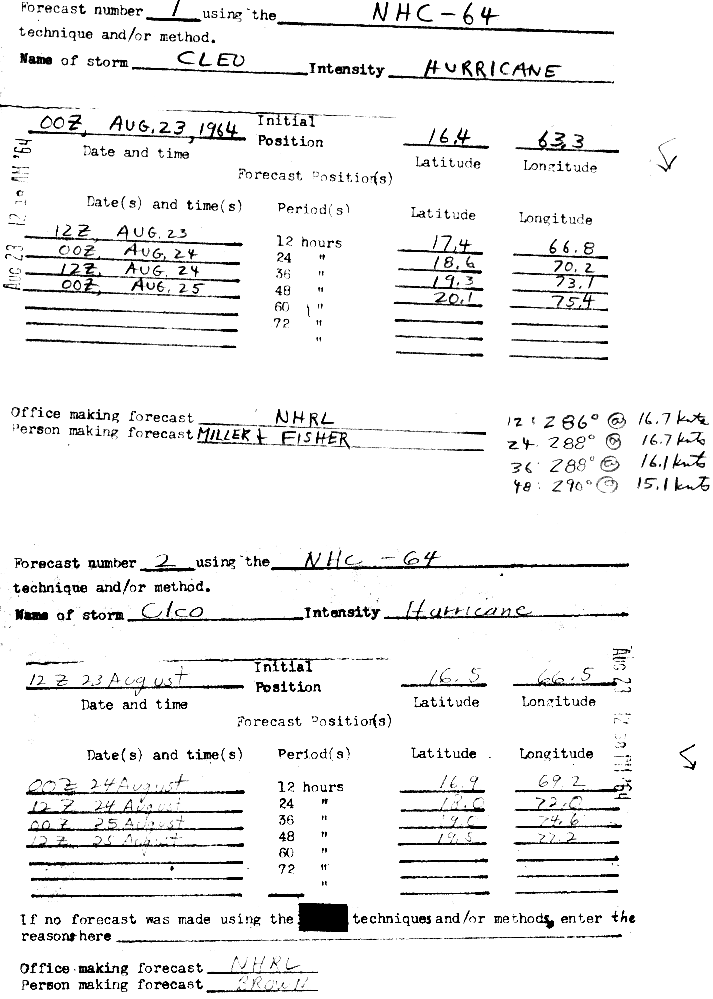 Forecast number 1 using the NHC-64
technique and/or method.
Name of storm CLEO Intensity HURRICANE
00Z, AUG. 23, 1964 Initial Position 16.4 63.3
Date and time Latitude Longitude
Forecast Position(s)
Date(s) and time(s) Period(s) Latitude Longitude
12Z, AUG. 23 12 hours 17.4 66.8
00Z, AUG. 24 24 " 18.6 70.2
12Z, AUG. 24 36 " 19.3 73.1
00Z, AUG. 25 48 " 20.1 75.4
60 "
72 "
"
Office making forecast NHRL
Person making forecast MILLER & FISHER
12: 286° @ 16.7 knts
24: 288° @ 16.7 knts
36: 288° @ 16.1 knts
48: 290° @ 15.1 knts
Forecast number 2 using the NHC-64
technique and/or method.
Name of storm Cleo Intensity Hurricane
12 Z 23 August Initial Position 16.5 66.5
Date and time Latitude Longitude
Forecast Position(s)
Date(s) and time(s) Period(s) Latitude Longitude
00Z 24 August 12 hours 16.9 69.2
12 Z 24 August 24 " 18.0 72.0
00Z 25 August 36 " 74.6
12 Z 25 August 48 " 19.5 77.2
60 "
72 "
"
If no forecast was made using the techniques and/or methods, enter the
reasons here
Office making forecast NHRL
Person making forecast BROWN
AUG 23 '64
AUG 23 '64